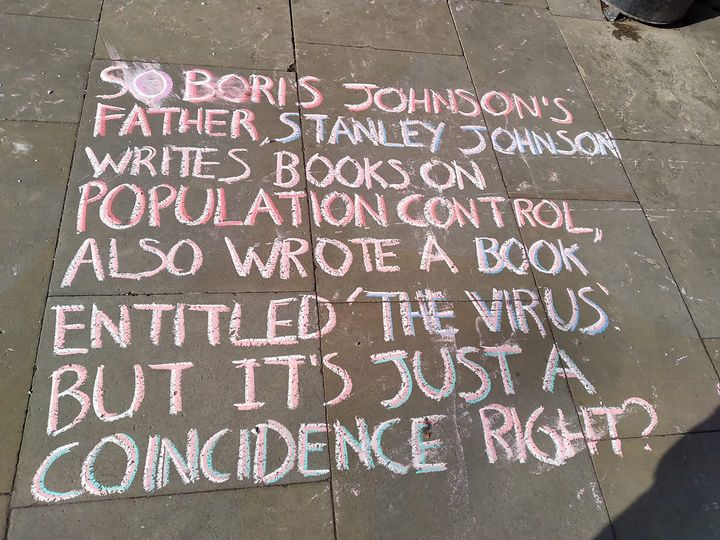 SO BORIS JOHNSON'S
FATHER, STANLEY JOHNSON
WRITES BOOKS ON
POPULATION CONTROL,
ALSO WROTE A BOOK
ENTITLED 'THE VIRUS'
BUT IT'S JUST A
COINCIDENCE RIGHT?